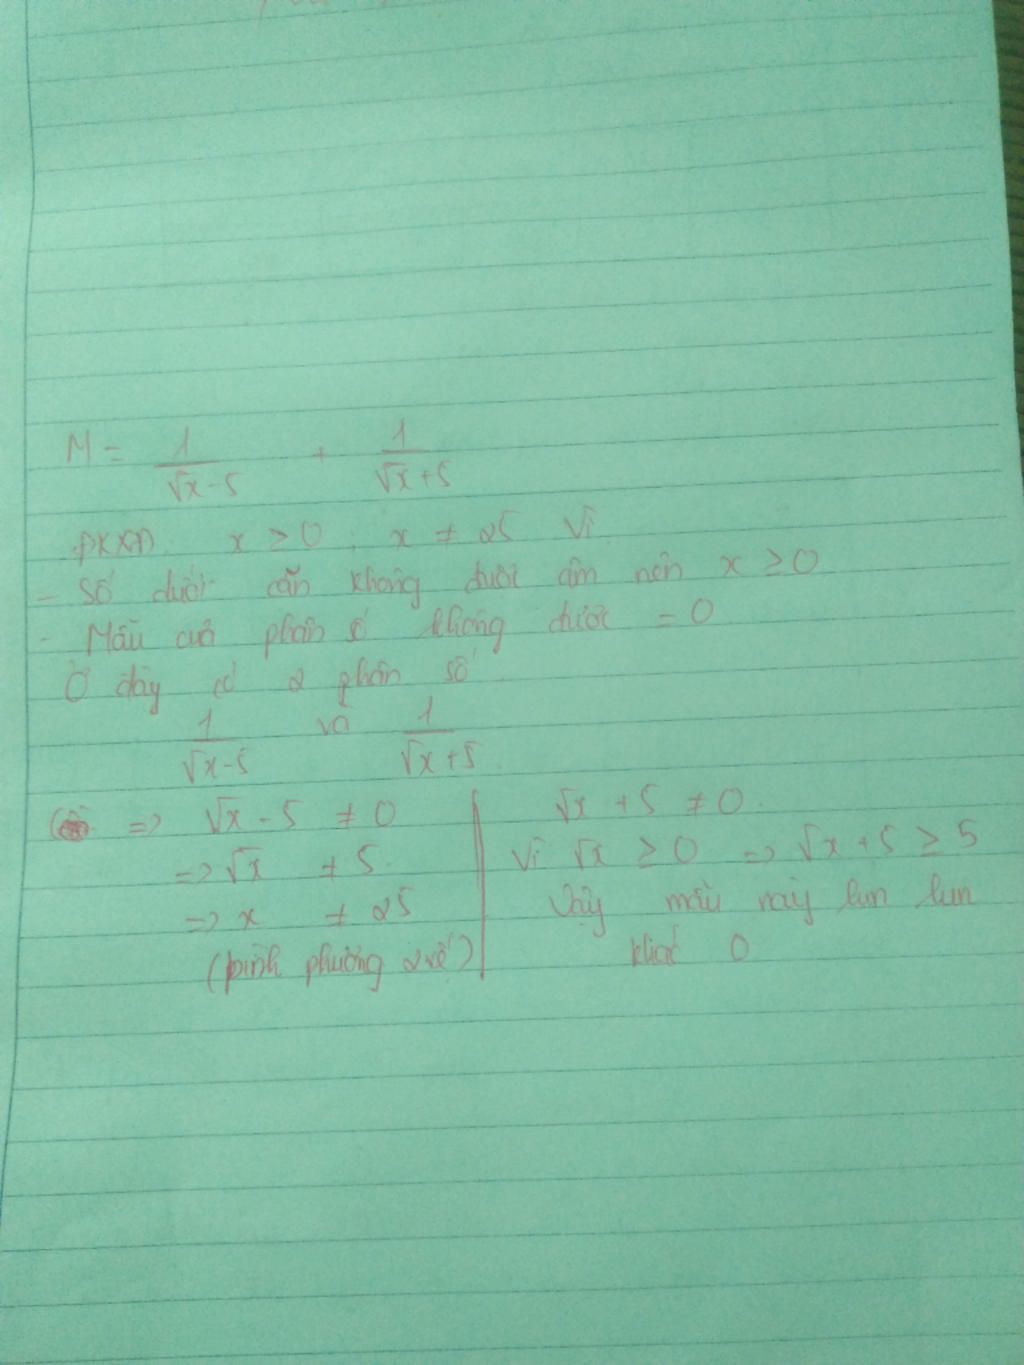 M = 1/(√x - 5) + 1/(√x + 5)
ĐKXĐ: x ≥ 0; x ≠ 25 Vì
- Số dưới căn không được âm nên x ≥ 0
- Mẫu của phân số không được = 0
Ở đây có 2 phân số
1/(√x - 5) và 1/(√x + 5)
=> √x - 5 ≠ 0
=> √x ≠ 5
=> x ≠ 25
(bình phương 2 vế)
√x + 5 ≠ 0
Vì √x ≥ 0 => √x + 5 ≥ 5
Vậy mẫu này lun lun
khác 0